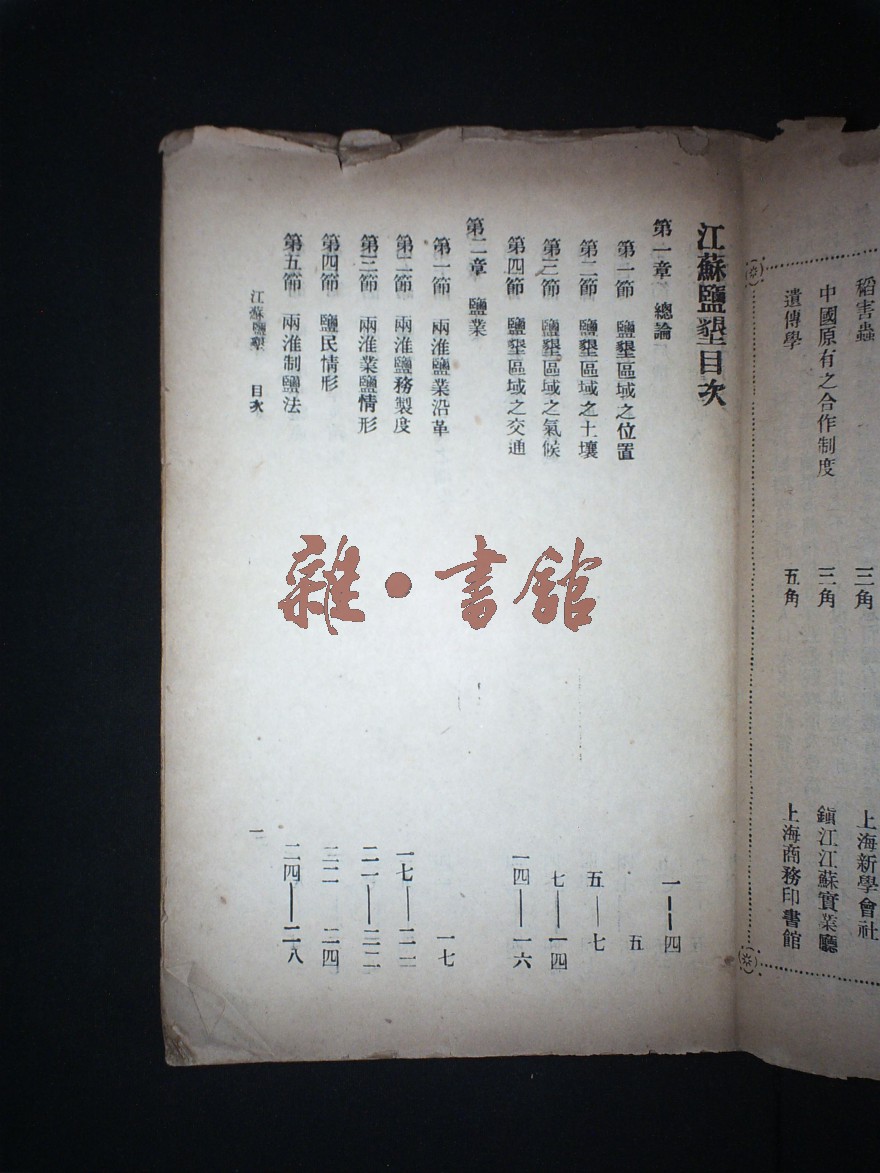 稻害蟲 三角 上海新學會社
中國原有之合作制度 三角 鎮江江蘇實業廳
遺傳學 五角 上海商務印書館
江蘇鹽墾目次
第一章 總論 一—四
第一節 鹽墾區域之位置 五
第二節 鹽墾區域之土壤 五—七
第三節 鹽墾區域之氣候 七—一四
第四節 鹽墾區域之交通 一四—一六
第二章 鹽業
第一節 兩淮鹽業沿革 一七
第二節 兩淮鹽務製度 一七—二一
第三節 兩淮業鹽情形 二一—二二
第四節 鹽民情形 二二 二四
第五節 兩淮制鹽法 二四—二八
江蘇鹽墾 目次 一
雜·書館